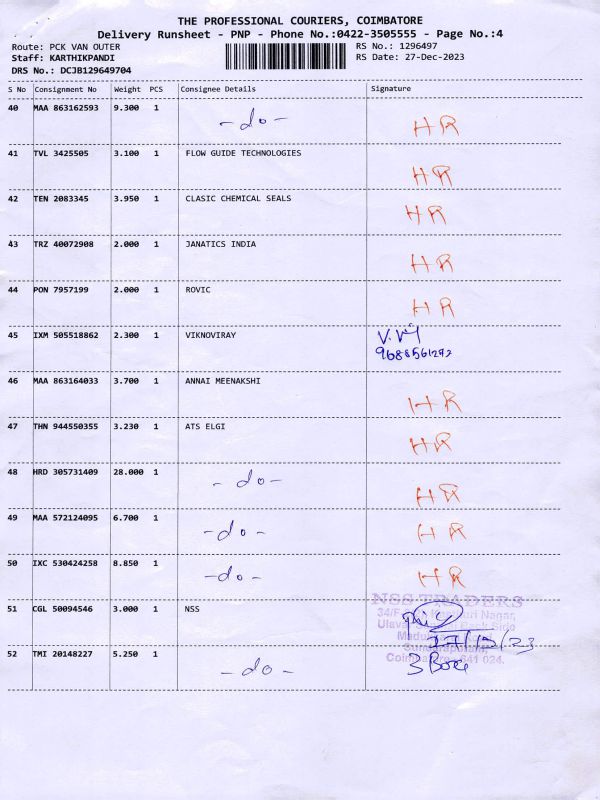 THE PROFESSIONAL COURIERS, COIMBATORE
Delivery Runsheet - PNP - Phone No.:0422-3505555 - Page No.:4
Route: PCK VAN OUTER RS No.: 1296497
Staff: KARTHIKPANDI RS Date: 27-Dec-2023
DRS No.: DCJB129649704
S No Consignment No Weight PCS Consignee Details Signature
40 MAA 863162593 9.300 1 -do- HR
41 TVL 3425505 3.100 1 FLOW GUIDE TECHNOLOGIES HR
42 TEN 2083345 3.950 1 CLASIC CHEMICAL SEALS HR
43 TRZ 40072908 2.000 1 JANATICS INDIA HR
44 PON 7957199 2.000 1 ROVIC HR
45 IXM 505518862 2.300 1 VIKNOVIRAY
9688561293
46 MAA 863164033 3.700 1 ANNAI MEENAKSHI HR
47 THN 944550355 3.230 1 ATS ELGI HR
48 HRD 305731409 28.000 1 -do- HR
49 MAA 572124095 6.700 1 -do- HR
50 IXC 530424258 8.850 1 -do- HR
NSS TRADERS
51 CGL 50094546 3.000 1 NSS
Nagar,
52 TMI 20148227 5.250 1 -do- 3 Box
641 024.